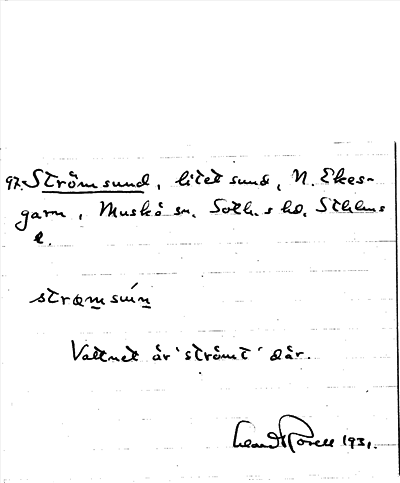 97. Strömsund, litet sund, N. Ekes-
garn, Muskö sn. Soth. s hd. Sthlms
l.
stræmsuǹn
Vattnet är 'strömt' där.
1931.